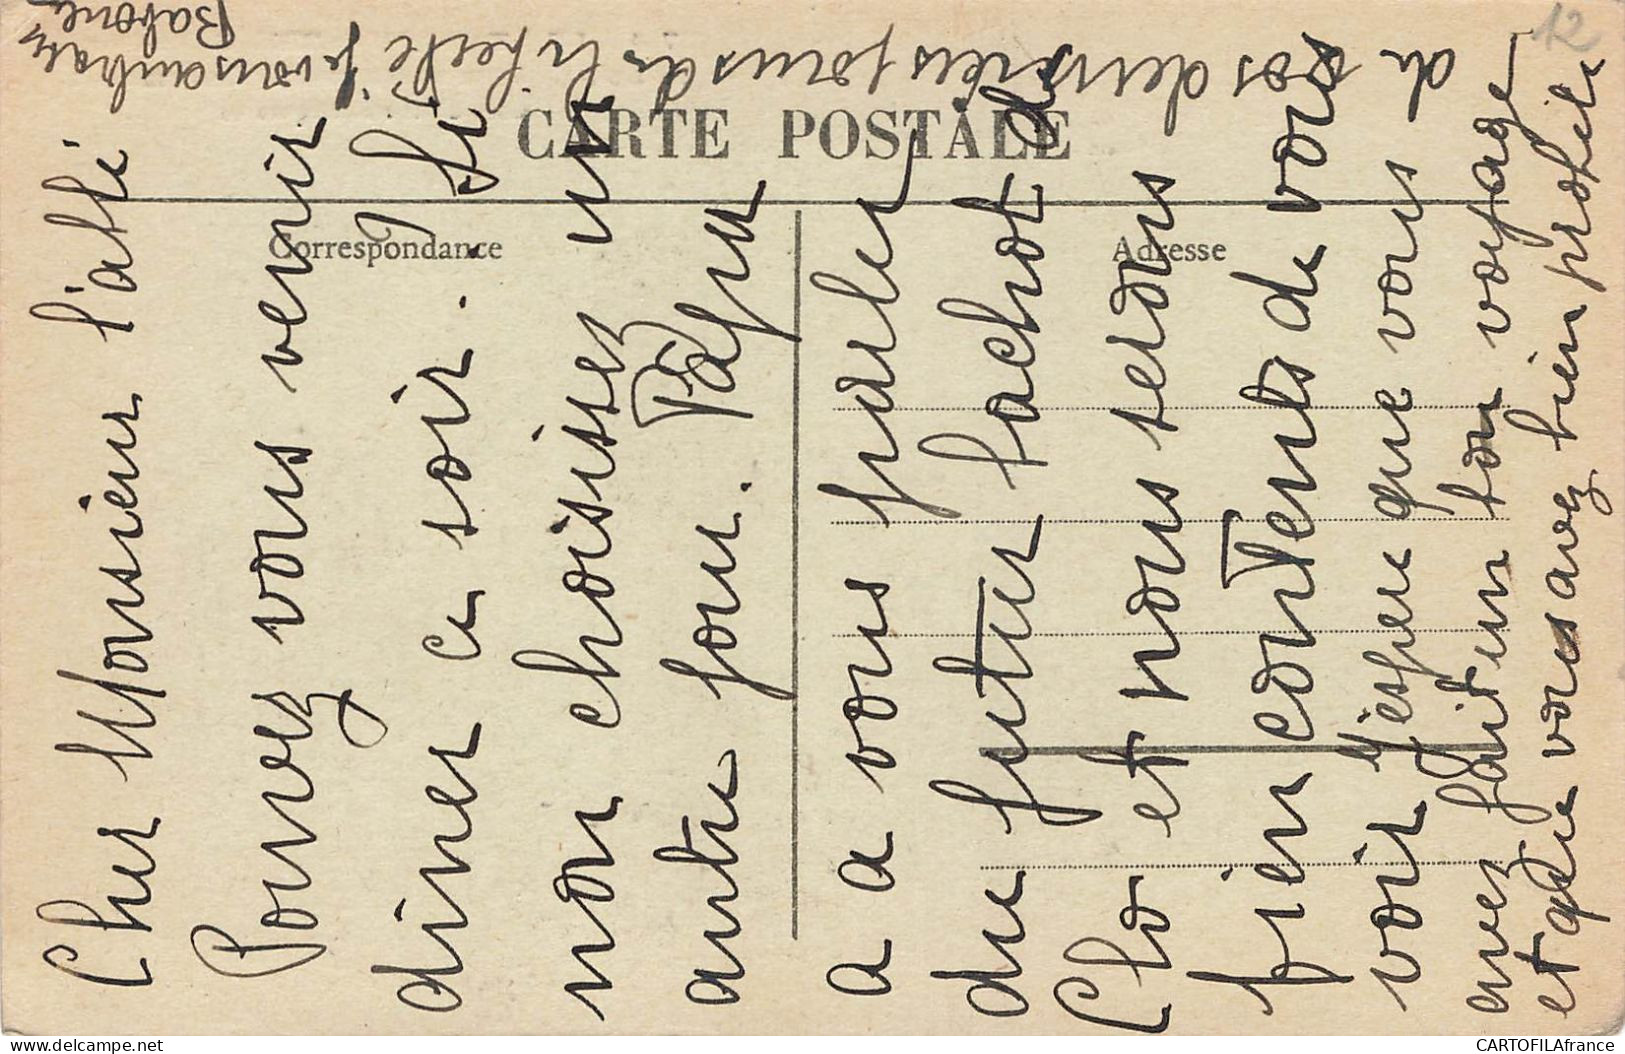 CARTE POSTALE
Correspondance
Adresse
Cher Monsieur l'abbé
Pouvez vous venir
diner ce soir. Si
non choisissez un
autre jour. Papa
a a vous parler
du futur cachot de
Clo et nous serons
bien contents de vous
voir j'espère que vous
avez fait un bon voyage
et que vous avez bien profité
de vos derniers jours de liberté je vous embrasse
12
CARTOFILAfrance
delcampe.net